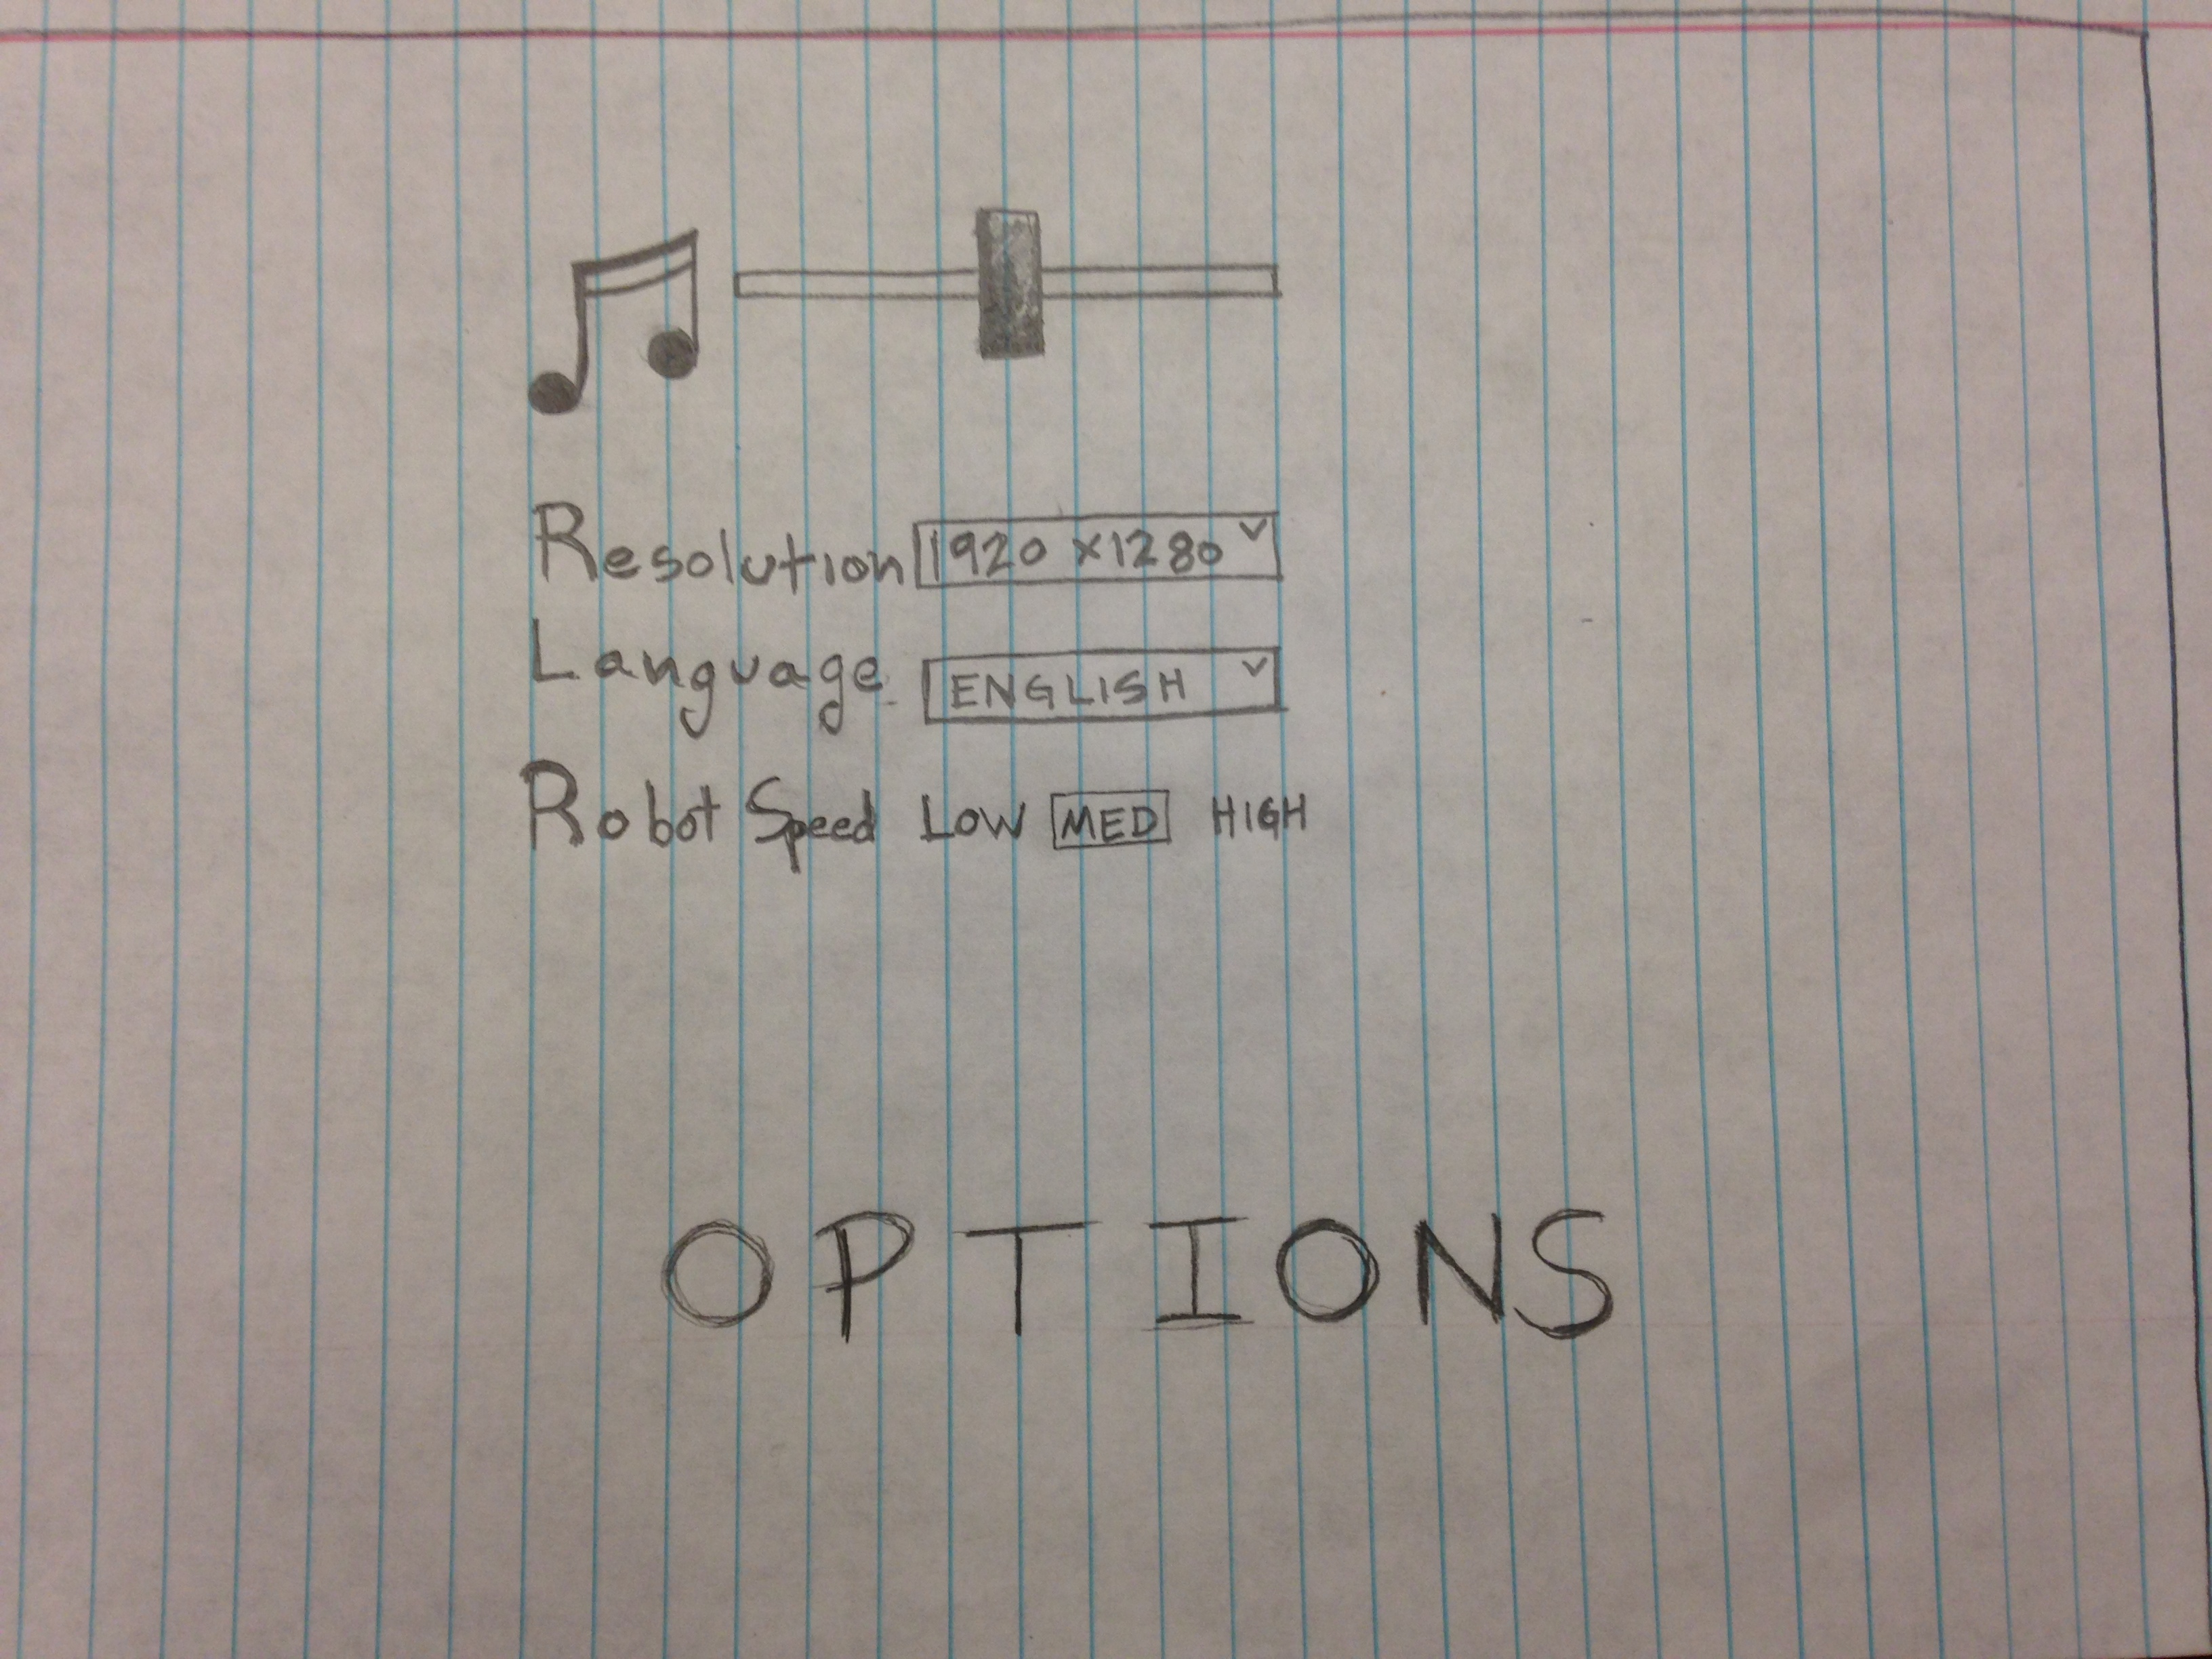 Resolution 1920 x1280
Language ENGLISH
Robot Speed LOW MED HIGH
OPTIONS